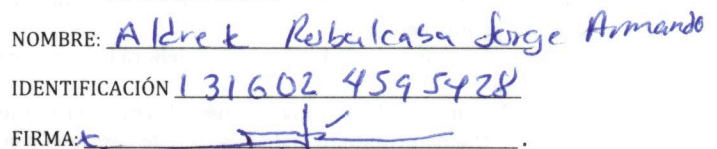 NOMBRE: Aldrete Rubalcaba Jorge Armando
IDENTIFICACIÓN 131602 4595428
FIRMA: